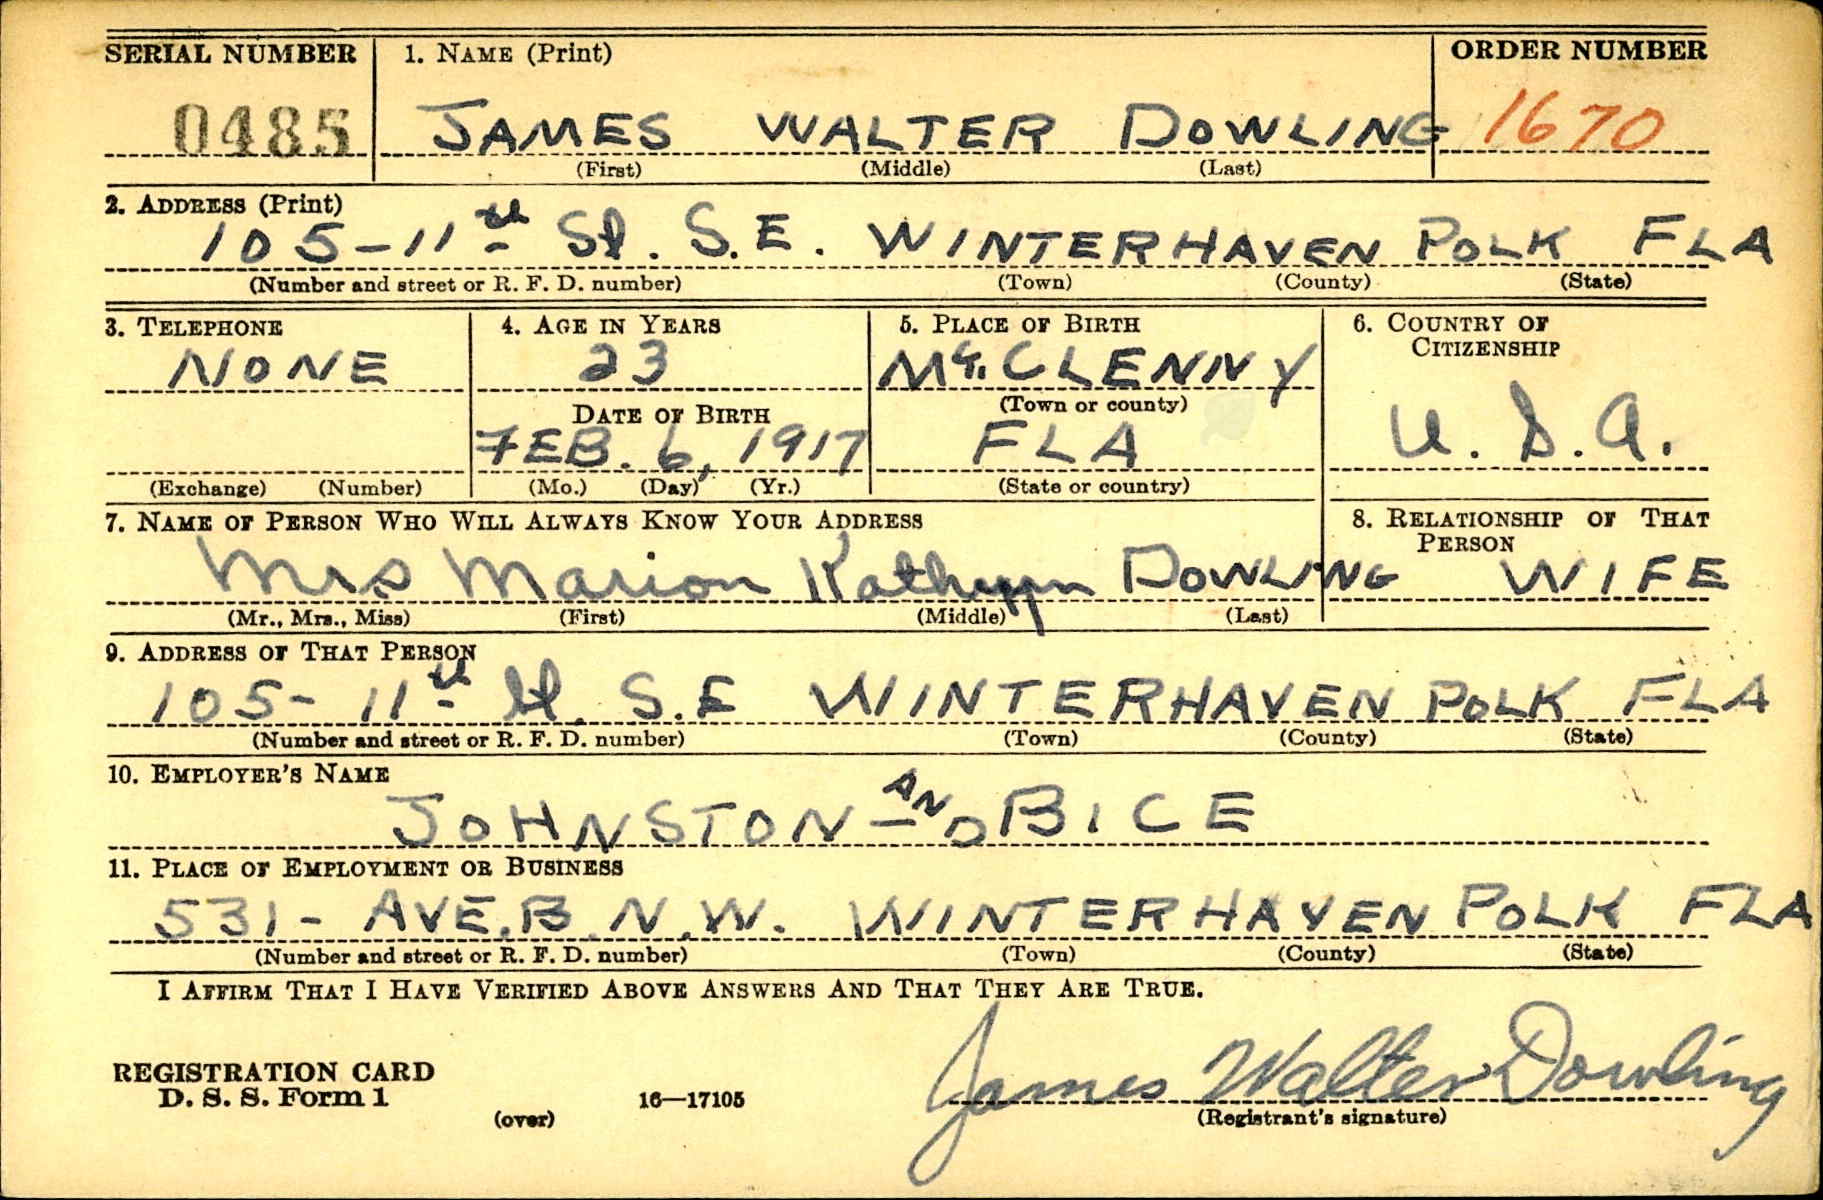 SERIAL NUMBER 1. NAME (Print) ORDER NUMBER
0485 JAMES WALTER DOWLING 1670
(First) (Middle) (Last)
2. ADDRESS (Print)
105-11th St. S.E. WINTERHAVEN POLK FLA
(Number and street or R. F. D. number) (Town) (County) (State)
3. TELEPHONE 4. AGE IN YEARS 5. PLACE OF BIRTH 6. COUNTRY OF
CITIZENSHIP
NONE 23 Mc.CLENNY
(Town or county)
DATE OF BIRTH
FEB. 6, 1917 FLA U.S.A.
(Exchange) (Number) (Mo.) (Day) (Yr.) (State or country)
7. NAME OF PERSON WHO WILL ALWAYS KNOW YOUR ADDRESS 8. RELATIONSHIP OF THAT
PERSON
Mrs Marion Kathryn DOWLING WIFE
(Mr., Mrs., Miss) (First) (Middle) (Last)
9. ADDRESS OF THAT PERSON
105-11th St. S.E WINTERHAVEN POLK FLA
(Number and street or R. F. D. number) (Town) (County) (State)
10. EMPLOYER'S NAME
JOHNSTON AND BICE
11. PLACE OF EMPLOYMENT OR BUSINESS
531- AVE. B. N.W. WINTERHAVEN POLK FLA
(Number and street or R. F. D. number) (Town) (County) (State)
I AFFIRM THAT I HAVE VERIFIED ABOVE ANSWERS AND THAT THEY ARE TRUE.
REGISTRATION CARD
D. S. S. Form 1
(over) 16—17105 James Walter Dowling
(Registrant's signature)